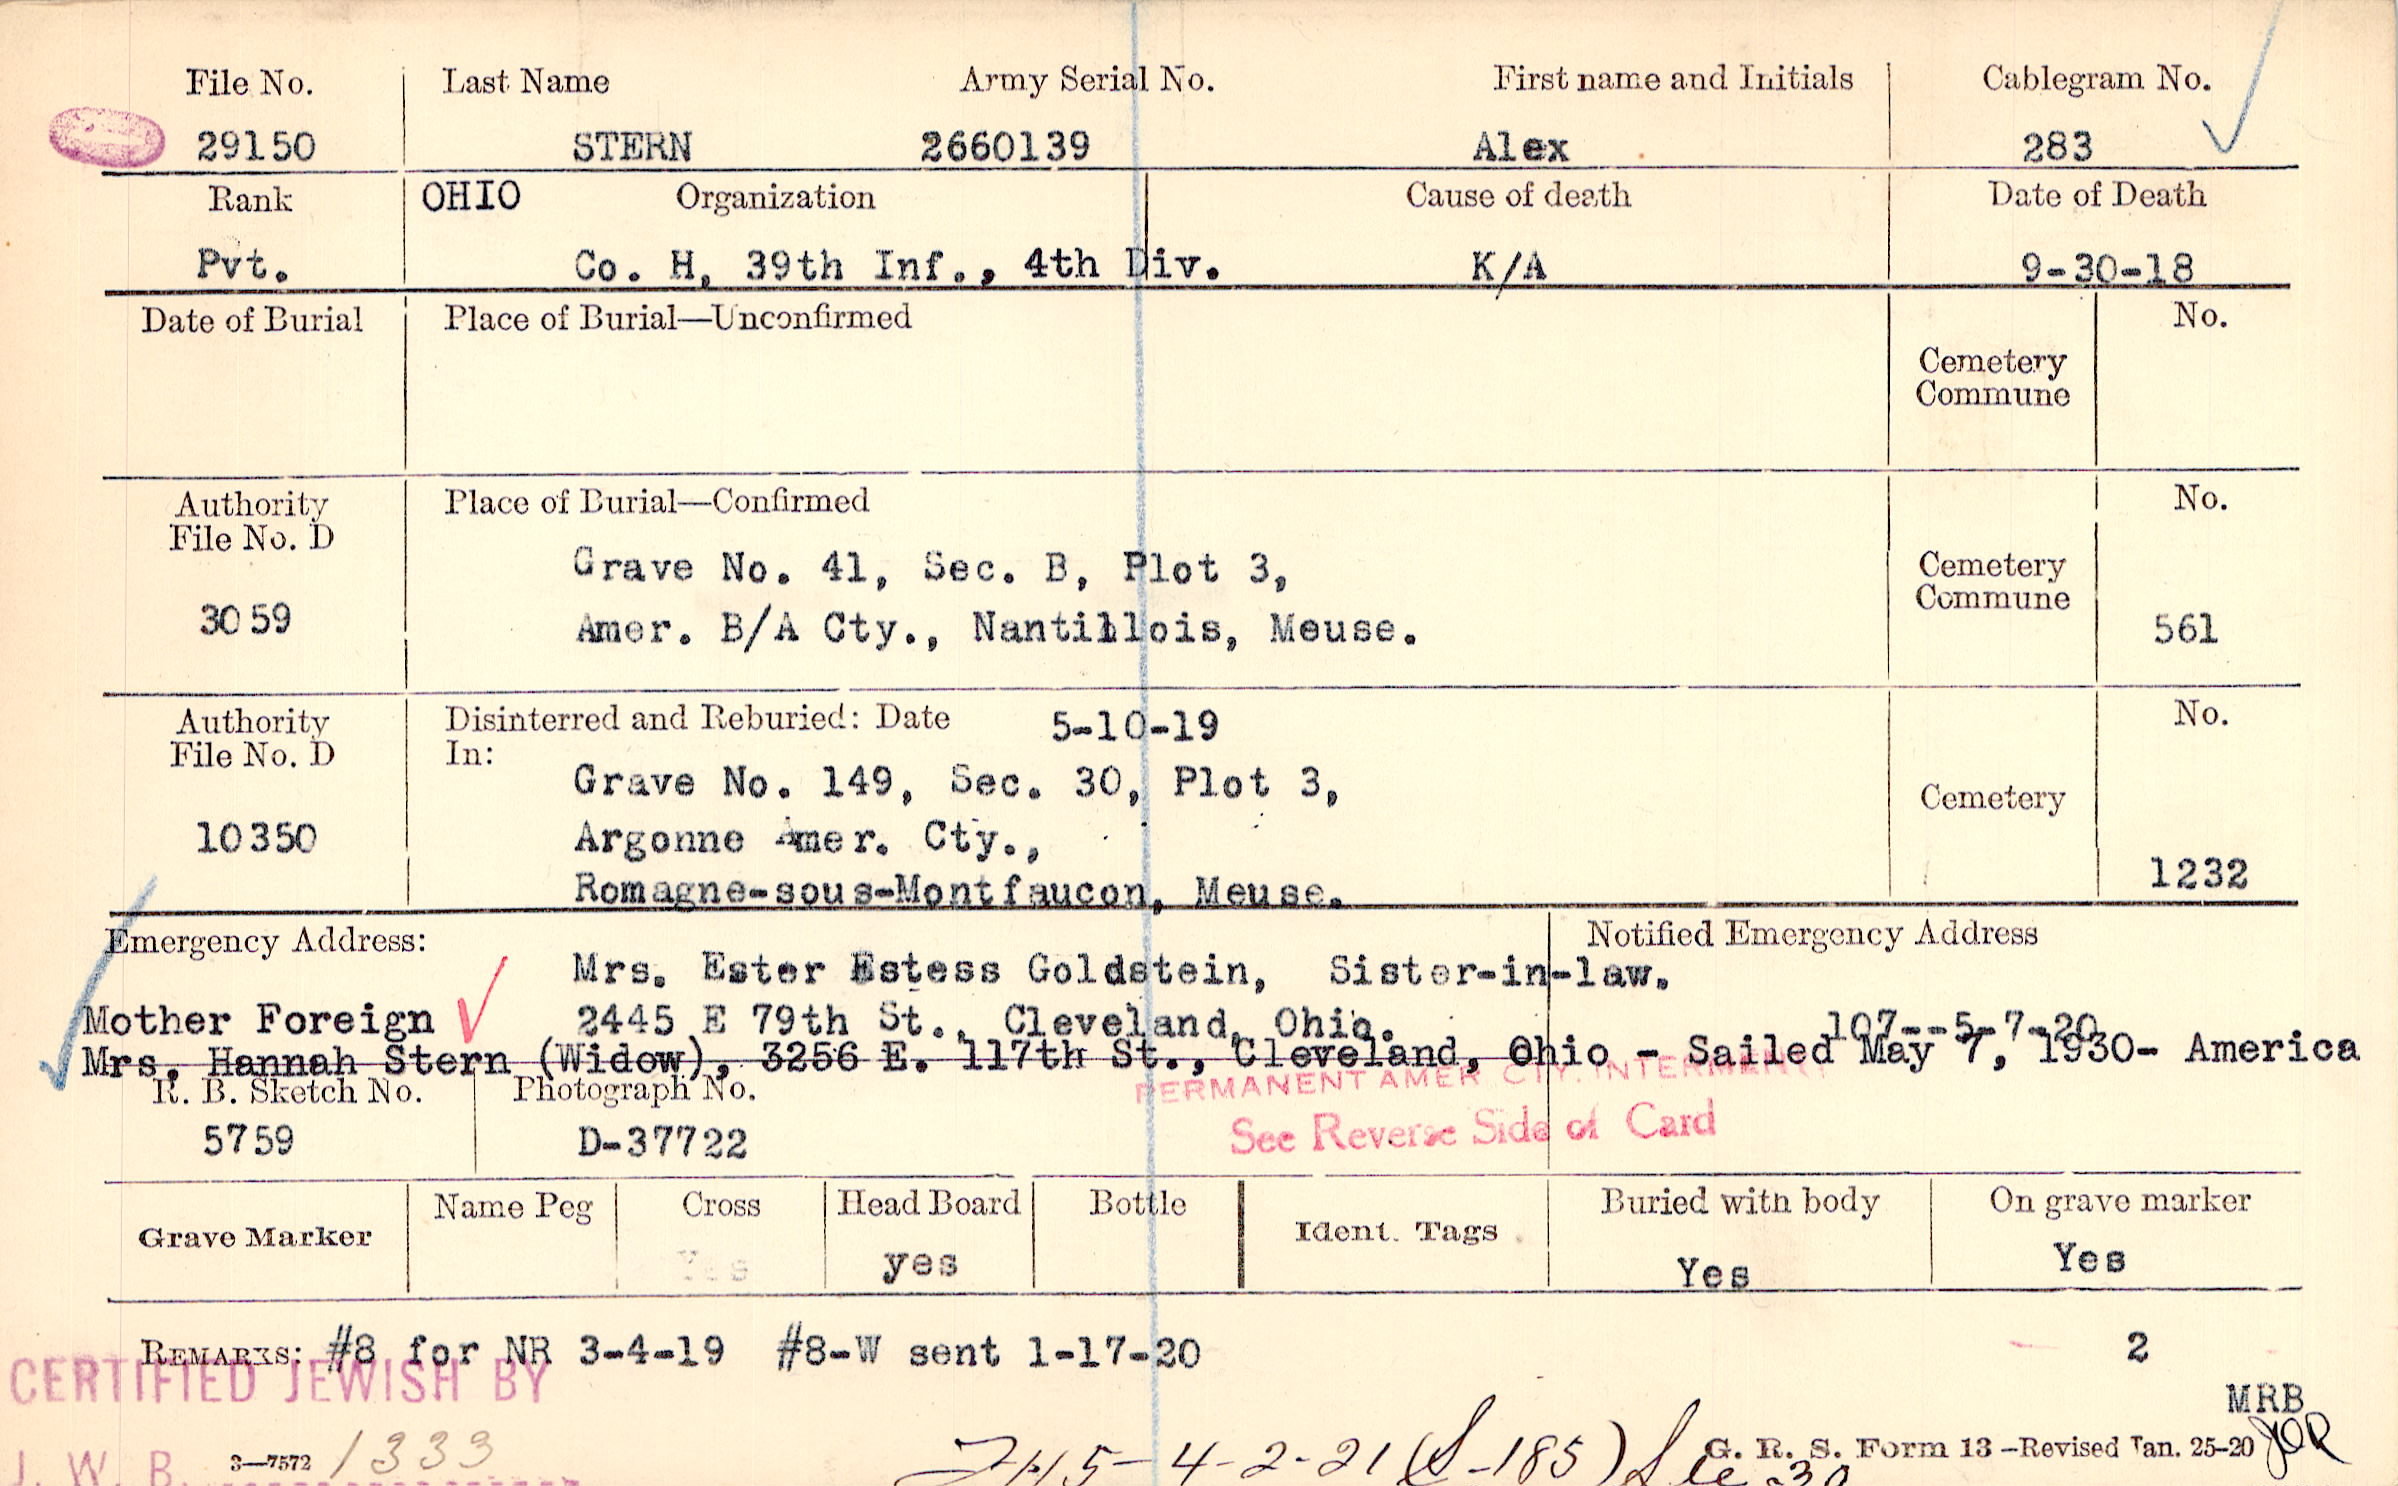 File No. Last Name Army Serial No. First name and Initials Cablegram No.
29150 STERN 2660139 Alex 283
Rank OHIO Organization Cause of death Date of Death
Pvt. Co. H, 39th Inf., 4th Div. K/A 9-30-18
Date of Burial Place of Burial—Unconfirmed No.
Cemetery
Commune
Authority Place of Burial—Confirmed No.
File No. D
Grave No. 41, Sec. B, Plot 3, Cemetery
Commune
3059 Amer. B/A Cty., Nantillois, Meuse. 561
Authority Disinterred and Reburied: Date 5-10-19 No.
File No. D In:
Grave No. 149, Sec. 30, Plot 3,
Cemetery
10350 Argonne Amer. Cty.,
1232
Romagne-sous-Montfaucon, Meuse.
Emergency Address: Notified Emergency Address
Mrs. Ester Estess Goldstein, Sister-in-law.
Mother Foreign 2445 E 79th St., Cleveland, Ohio. 107--5-7-20
Mrs. Hannah Stern (Widow), 3256 E. 117th St., Cleveland, Ohio - Sailed May 7, 1930- America
R. B. Sketch No. Photograph No. PERMANENT AMER CTY. INTERMENT
5759 D-37722 See Reverse Side of Card
Name Peg Cross Head Board Bottle Buried with body On grave marker
Grave Marker Ident. Tags
Yes yes Yes Yes
REMARKS: #8 for NR 3-4-19 #8-W sent 1-17-20 2
CERTIFIED JEWISH BY
MRB
J. W. B. 3—7572 1333 4-2-21 (S-185) G. R. S. Form 13—Revised Jan. 25-20